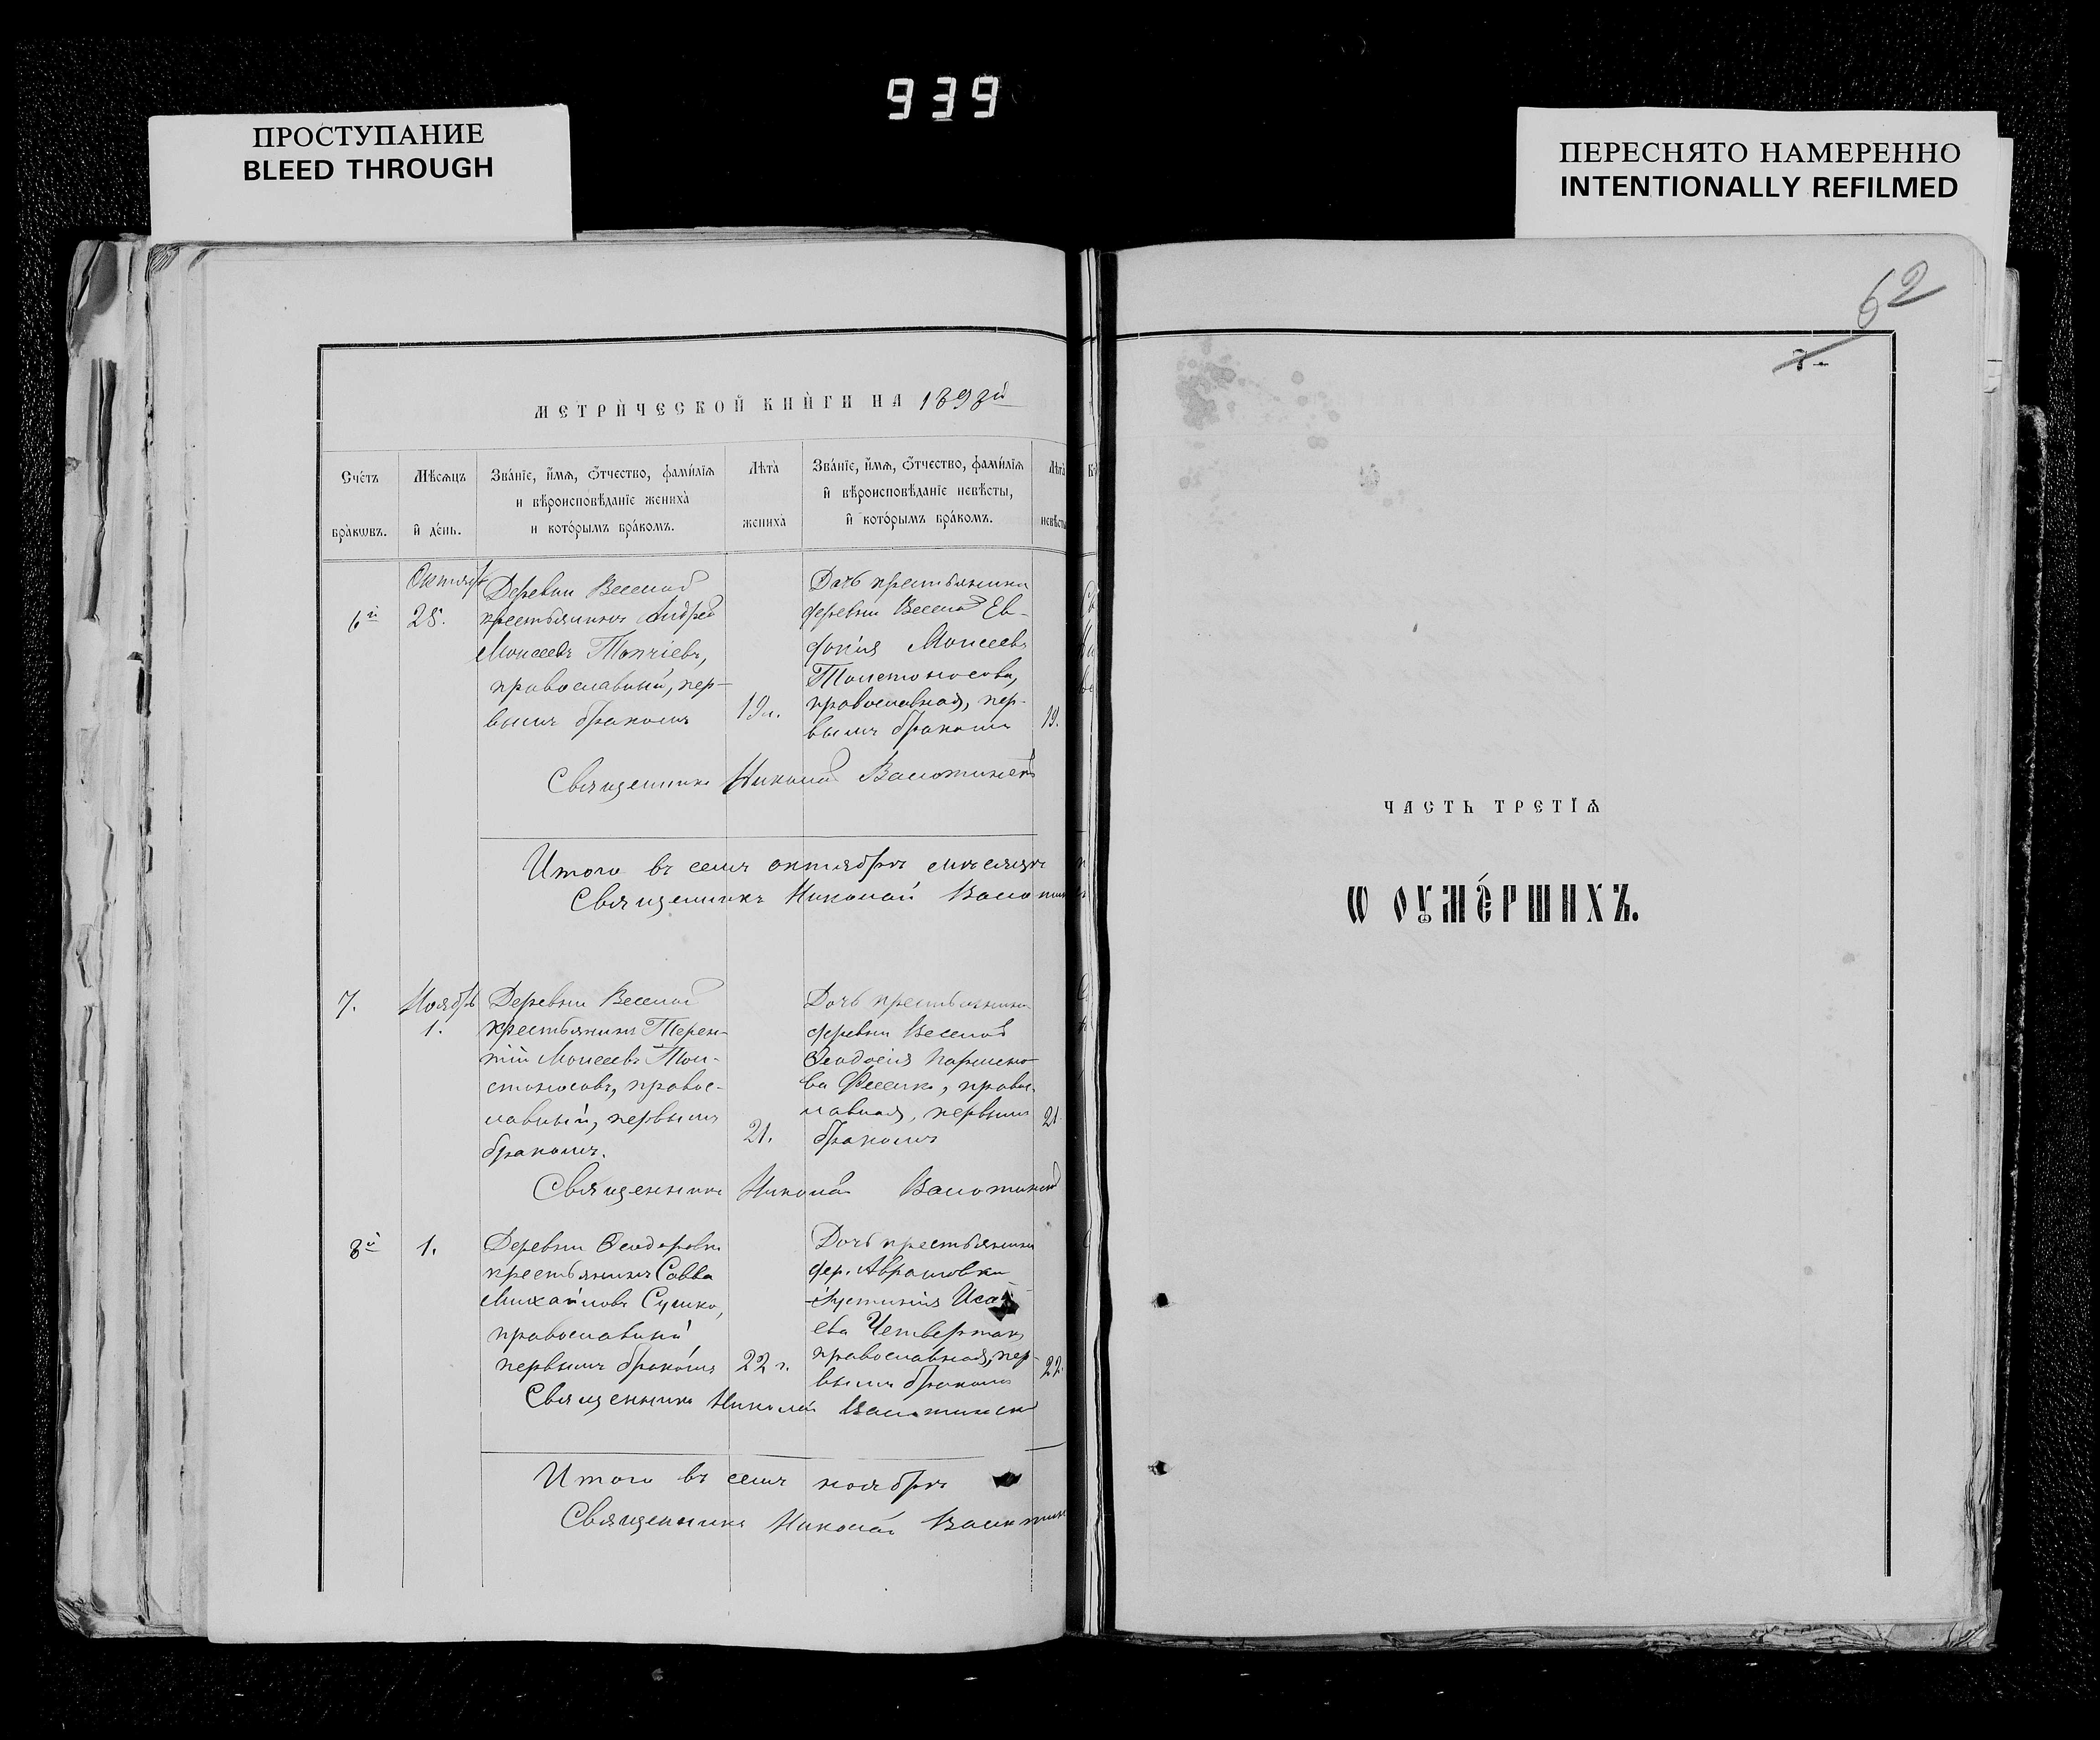 939
ПРОСТУПАНИЕ
BLEED THROUGH
ПЕРЕСНЯТО НАМЕРЕННО
INTENTIONALLY REFILMED
62
МЕТРИЧЕСКОЙ КНИГИ НА 1893й
Счетъ браковъ.
Мѣсяцъ и день.
Званіе, имя, отчество, фамилія и вѣроисповѣданіе жениха и которымъ бракомъ.
Лѣта жениха
Званіе, имя, отчество, фамилія и вѣроисповѣданіе невѣсты, и которымъ бракомъ.
Лѣта невѣсты
6й
Октябр
25.
Деревни Веселой
крестьянинъ Андрей
Моисеевъ Топчіевъ,
православный, пер-
вымъ бракомъ
19л.
Дочь крестьянина
деревни Веселой Ев-
докія Моисеева
Толстоносова,
православная, пер-
вымъ бракомъ
19.
Священникъ Николай
Итого въ семъ октябрѣ мѣсяцѣ
Священникъ Николай
7.
Ноябрь
1.
Деревни Веселой
крестьянинъ Терен-
тій Моисеевъ Тол-
стоносовъ, правос-
лавный, первымъ
бракомъ.
21.
Дочь крестьянина
деревни Веселой
Ѳеодосія Парменo-
ва, правос-
лавная, первымъ
бракомъ
21.
Священникъ Николай
8й
1.
Деревни Ѳеодоровки
крестьянинъ Савва
Михайловъ Сушко,
православный
первымъ бракомъ
22 г.
Дочь крестьянина
дер. Аврамовки
Іустинія Иса
ева Четвертакъ
православная, пер-
вымъ бракомъ
22.
Священникъ Николай
Итого въ семъ ноябрѣ
Священникъ Николай
ЧАСТЬ ТРЕТІЯ
Ѡ ОУМЕРШИХЪ.